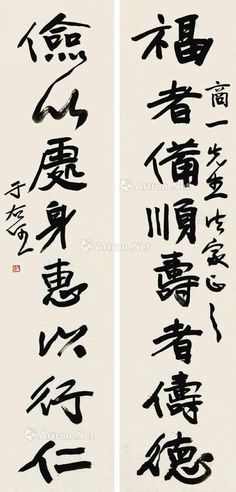 福者備順壽者儔德
商一先生法家正之
儉以處身惠以行仁
于右任
Artron.Net
Artron.Net
Artron.Net
Artron.Net